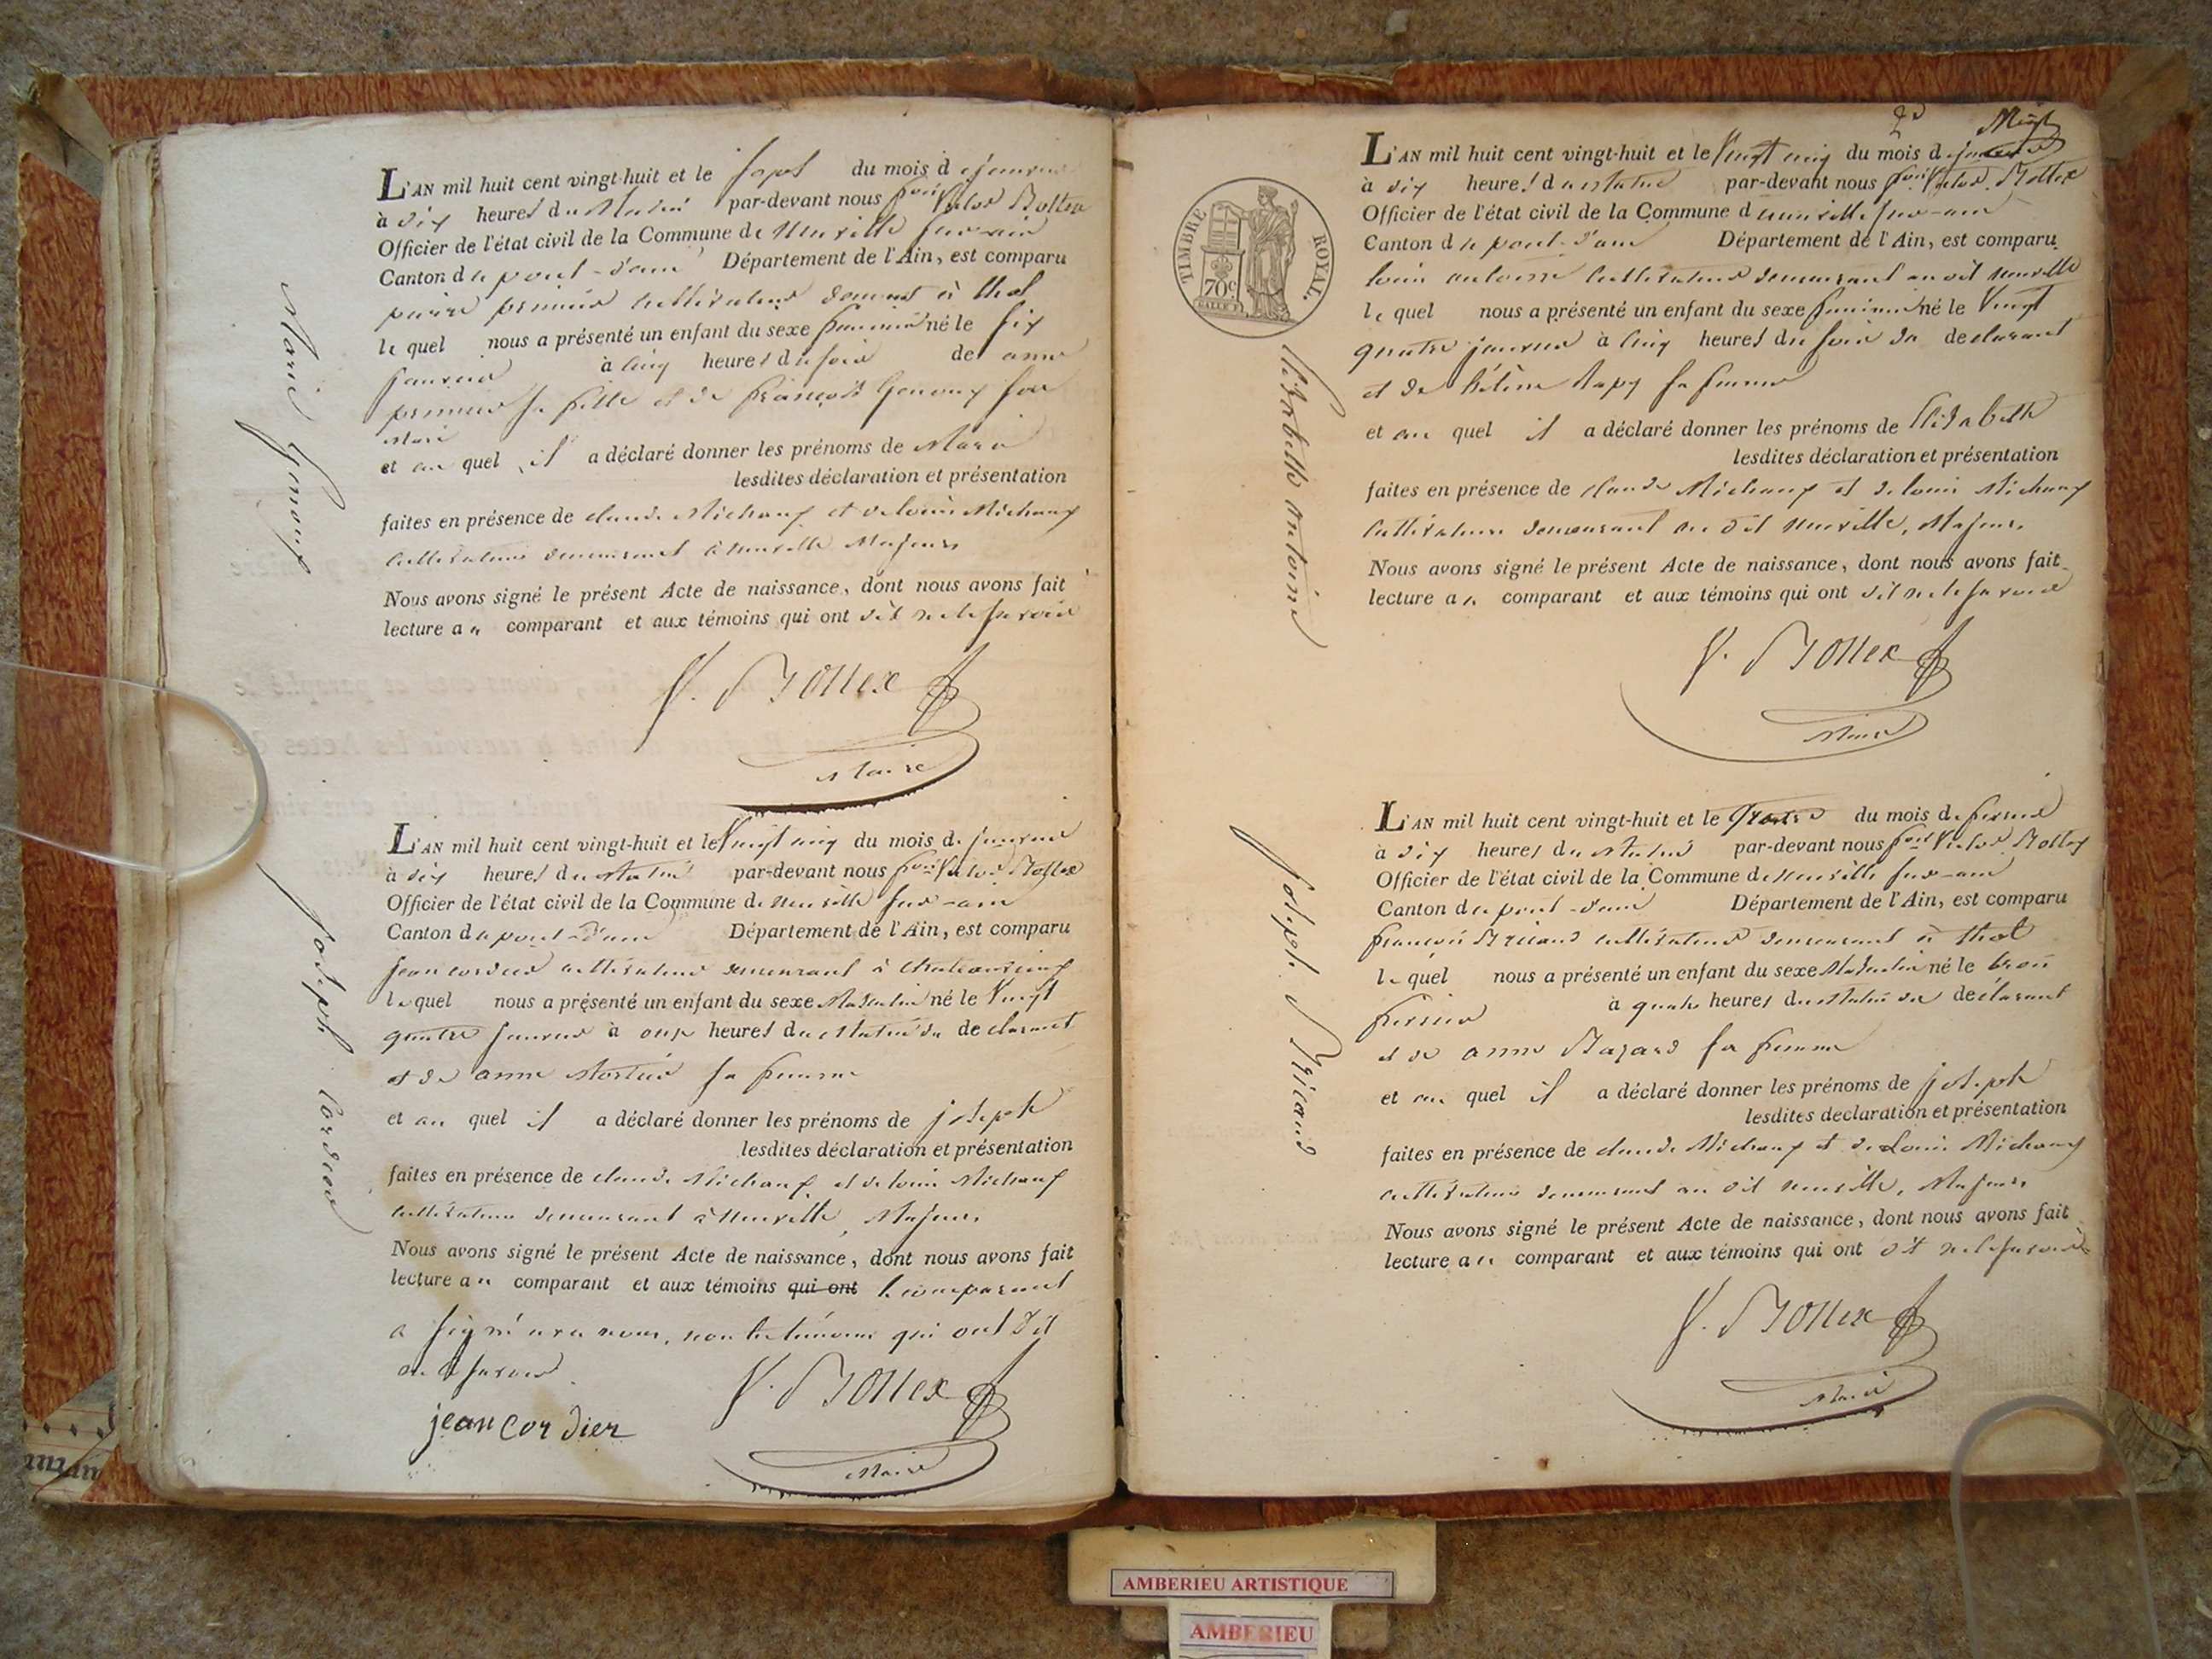 L'AN mil huit cent vingt-huit et le sept du mois de janvier
à dix heures du matin par-devant nous fçois Victor Bottex
Officier de l'état civil de la Commune de neuville sur-ain
Canton du pont-d'ain Département de l'Ain, est comparu
pierre cultivateur demeurant à thol
lequel nous a présenté un enfant du sexe feminin né le six
janvier à cinq heures du soir de anne
sa fille et de françois Genoux son
mari
et au quel il a déclaré donner les prénoms de Marie
lesdites déclaration et présentation
faites en présence de claude Michaux et de louis Michaux
cultivateurs demeurant à neuville Majeurs
Nous avons signé le présent Acte de naissance, dont nous avons fait
lecture au comparant et aux témoins qui ont dit ne le savoir
V. Bottex
Maire
Marie Genoux
L'AN mil huit cent vingt-huit et le Vingt cinq du mois de janvier
à dix heures du Matin par-devant nous fçois Victor Bottex
Officier de l'état civil de la Commune de neuville sur-ain
Canton du pont-d'ain Département de l'Ain, est comparu
jean cordier cultivateur demeurant à
lequel nous a présenté un enfant du sexe Masculin né le Vingt
quatre janvier à onze heures du Matin du declarant
et de anne sa femme
et au quel il a déclaré donner les prénoms de joseph
lesdites déclaration et présentation
faites en présence de claude Michaux et de louis Michaux
cultivateurs demeurant à neuville, Majeurs
Nous avons signé le présent Acte de naissance, dont nous avons fait
lecture au comparant et aux témoins qui ont le comparant
a signé avec nous, non les témoins qui ont dit
ne le savoir
V. Bottex
jean cordier
Maire
joseph Cordier
2d
L'AN mil huit cent vingt-huit et le Vingt cinq du mois de janvier
à dix heures du Matin par-devant nous fçois Victor Bottex
Officier de l'état civil de la Commune de neuville sur-ain
Canton du pont-d'ain Département de l'Ain, est comparu
louis antoine cultivateur demeurant au dit neuville
lequel nous a présenté un enfant du sexe feminin né le Vingt
quatre janvier à cinq heures du soir du declarant
et de sa femme
et au quel il a déclaré donner les prénoms de Elisabeth
lesdites déclaration et présentation
faites en présence de claude Michaux et de louis Michaux
cultivateurs demeurant au dit neuville, Majeurs
Nous avons signé le présent Acte de naissance, dont nous avons fait
lecture au comparant et aux témoins qui ont dit ne le savoir
V. Bottex
Maire
TIMBRE ROYAL.
70c
Elisabeth antoine
L'AN mil huit cent vingt-huit et le quatre du mois de fevrier
à dix heures du Matin par-devant nous fçois Victor Bottex
Officier de l'état civil de la Commune de neuville sur-ain
Canton du pont-d'ain Département de l'Ain, est comparu
françois cultivateur demeurant à thol
lequel nous a présenté un enfant du sexe Masculin né le trois
fevrier à quatre heures du Matin du declarant
et de anne sa femme
et au quel il a déclaré donner les prénoms de joseph
lesdites declaration et présentation
faites en présence de claude Michaux et de Louis Michaux
cultivateurs demeurant au dit neuville, Majeurs
Nous avons signé le présent Acte de naissance, dont nous avons fait
lecture au comparant et aux témoins qui ont dit ne le savoir
V. Bottex
Maire
joseph
AMBERIEU ARTISTIQUE
AMBERIEU